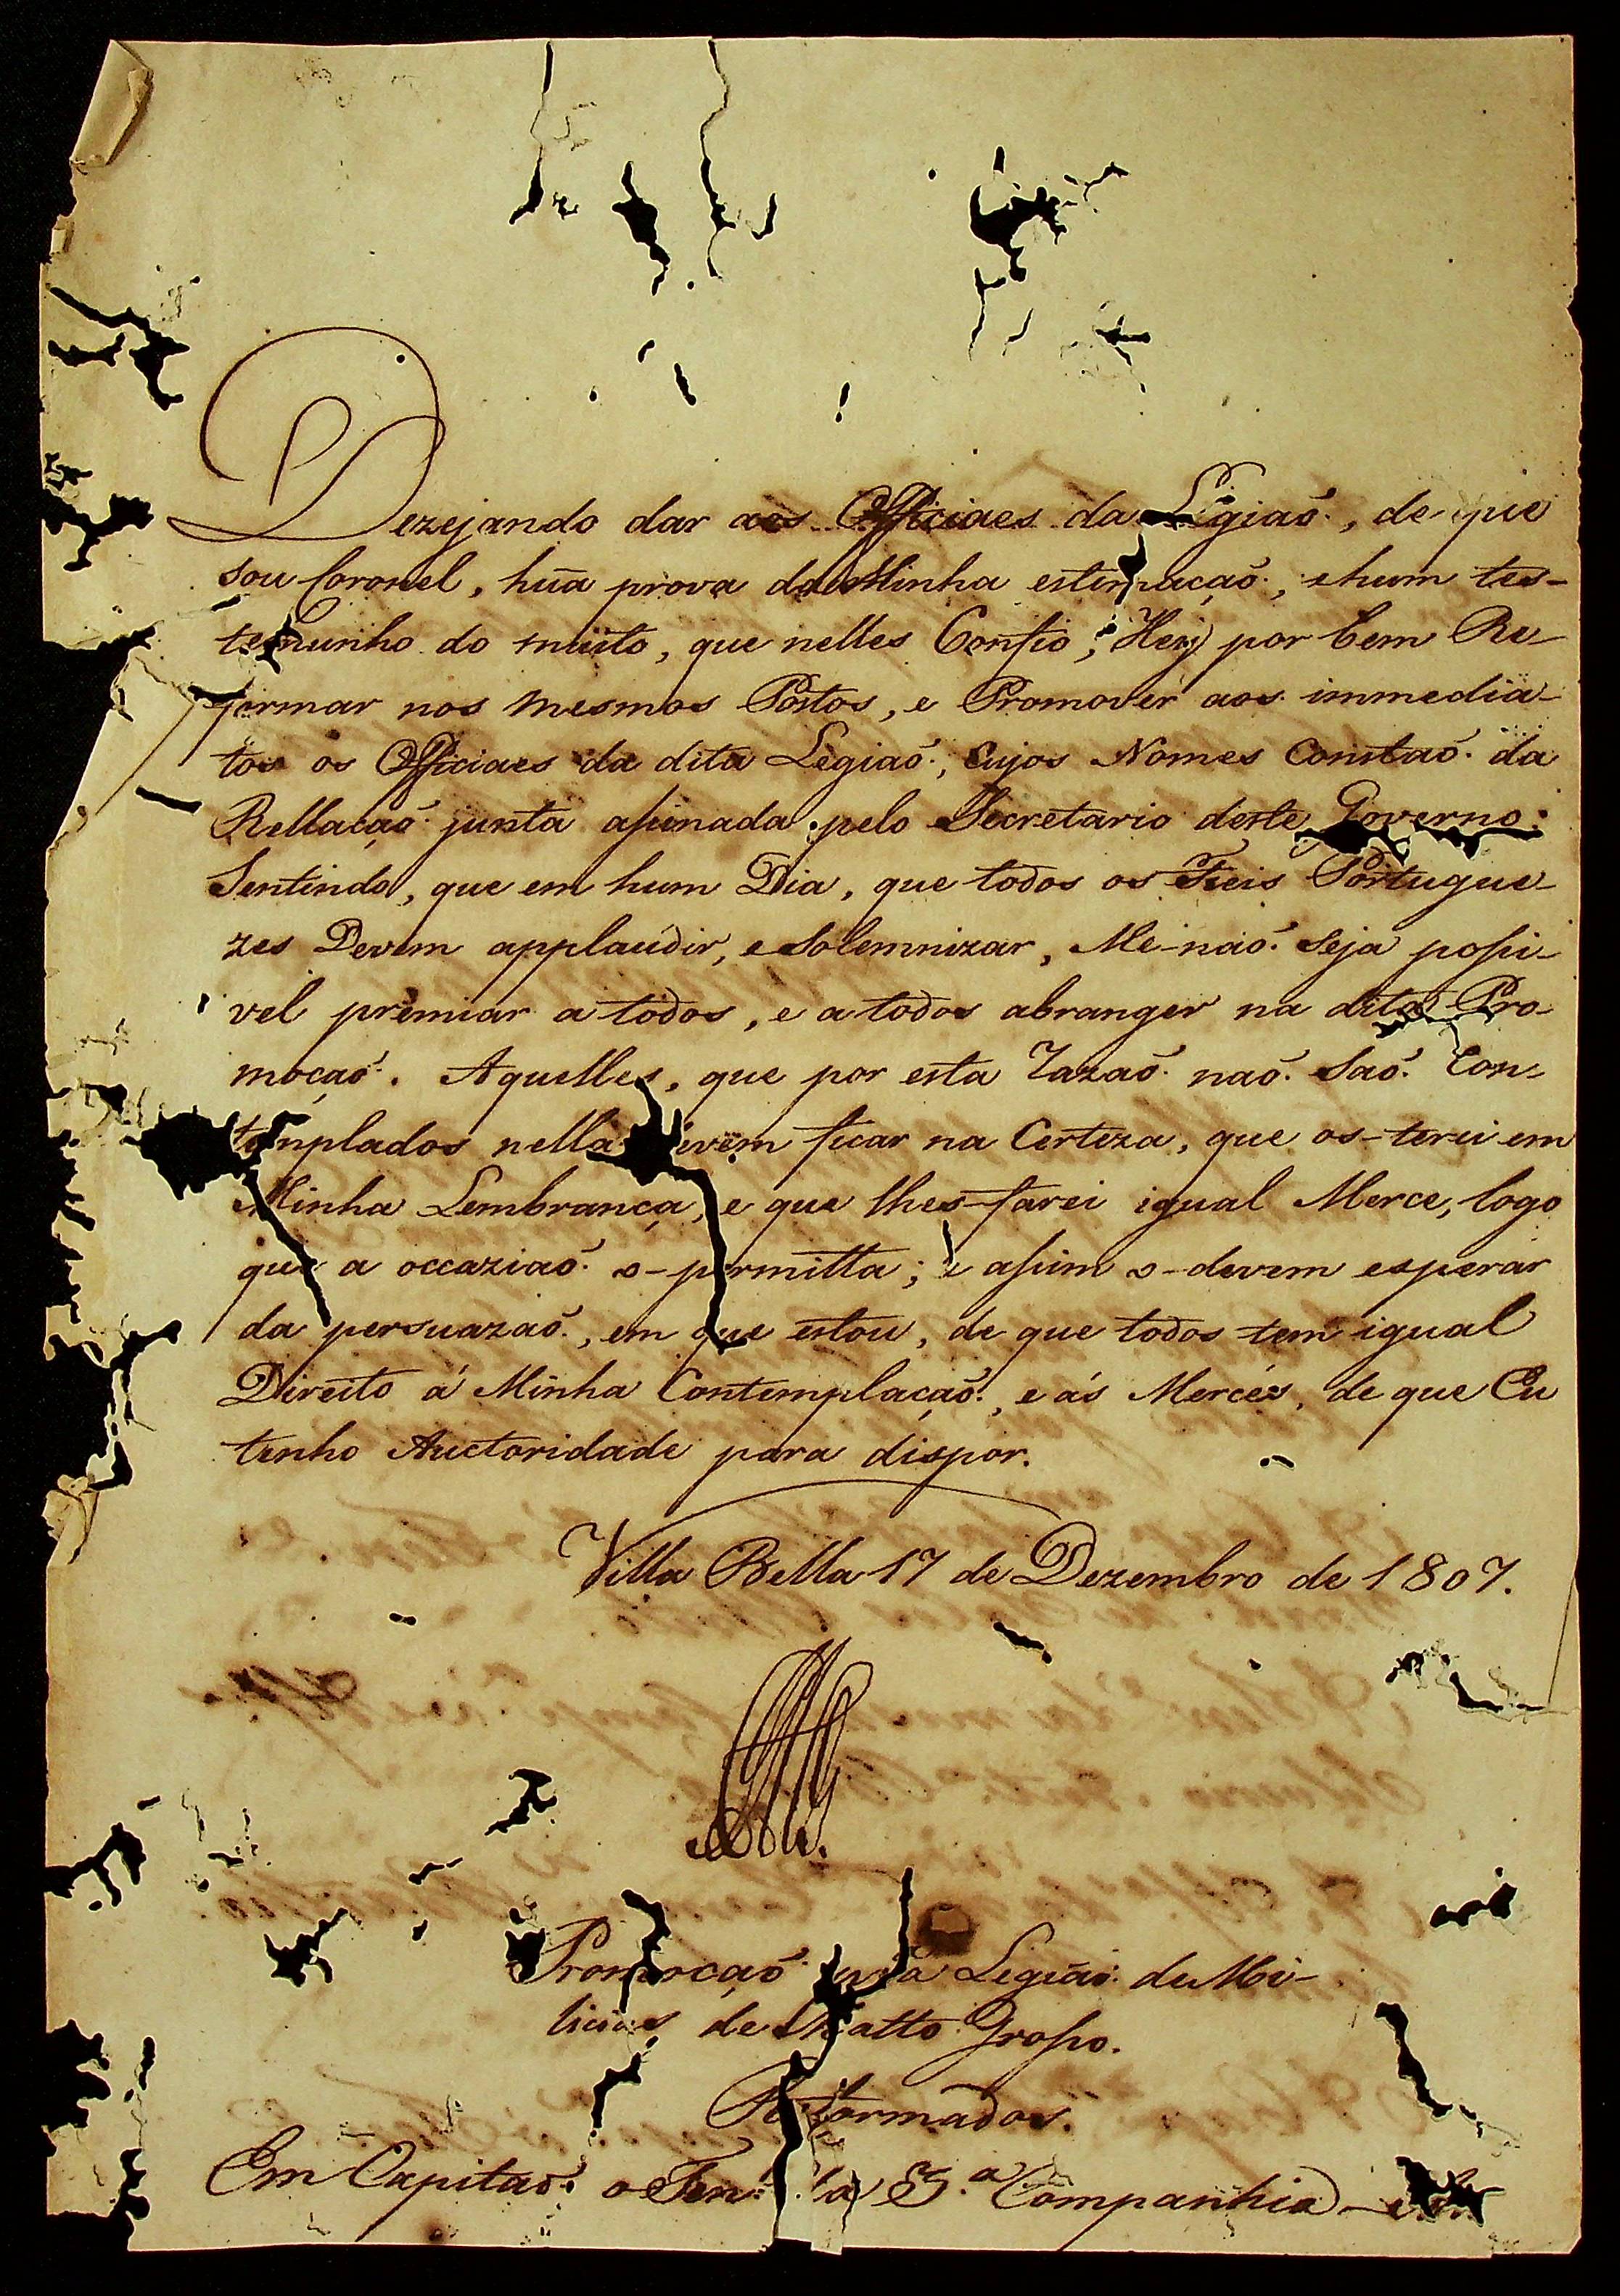 Dezejando dar aos Officiaes da Legiaõ, de que
sou Coronel, hũa prova da Minha estimaçaõ, e hum tes-
temunho do muito, que nelles Confio; Hey por bem Re-
formar nos mesmos Postos, e Promover aos immedia-
tos os Officiaes da dita Legiaõ, Cujos Nomes Constaõ da
Rellaçaõ junta assinada pelo Secretario deste Governo:
Sentindo, que em hum Dia, que todos os Fieis Portugue-
zes Devem applaudir, e Solemnizar, Me-naõ seja possi-
vel premiar a todos, e a todos abranger na dita Pro-
moçaõ. Aquelles, que por esta razaõ naõ Saõ Con-
templados nella devem ficar na Certeza, que os-terei em
Minha Lembrança, e que lhes-farei igual Merce, logo
que a occaziaõ o-permitta; e assim o-devem esperar
da persuazaõ, em que estou, de que todos tem igual
Direito á Minha Contemplaçaõ, e ás Mercés, de que Eu
tenho Auctoridade para dispor.
Villa Bella 17 de Dezembro de 1807.
Promoçaõ na Legiaõ de Mi-
licias de Matto Grosso.
Reformados.
Em Capitaõ o Ten.^te da 3.ª Companhia